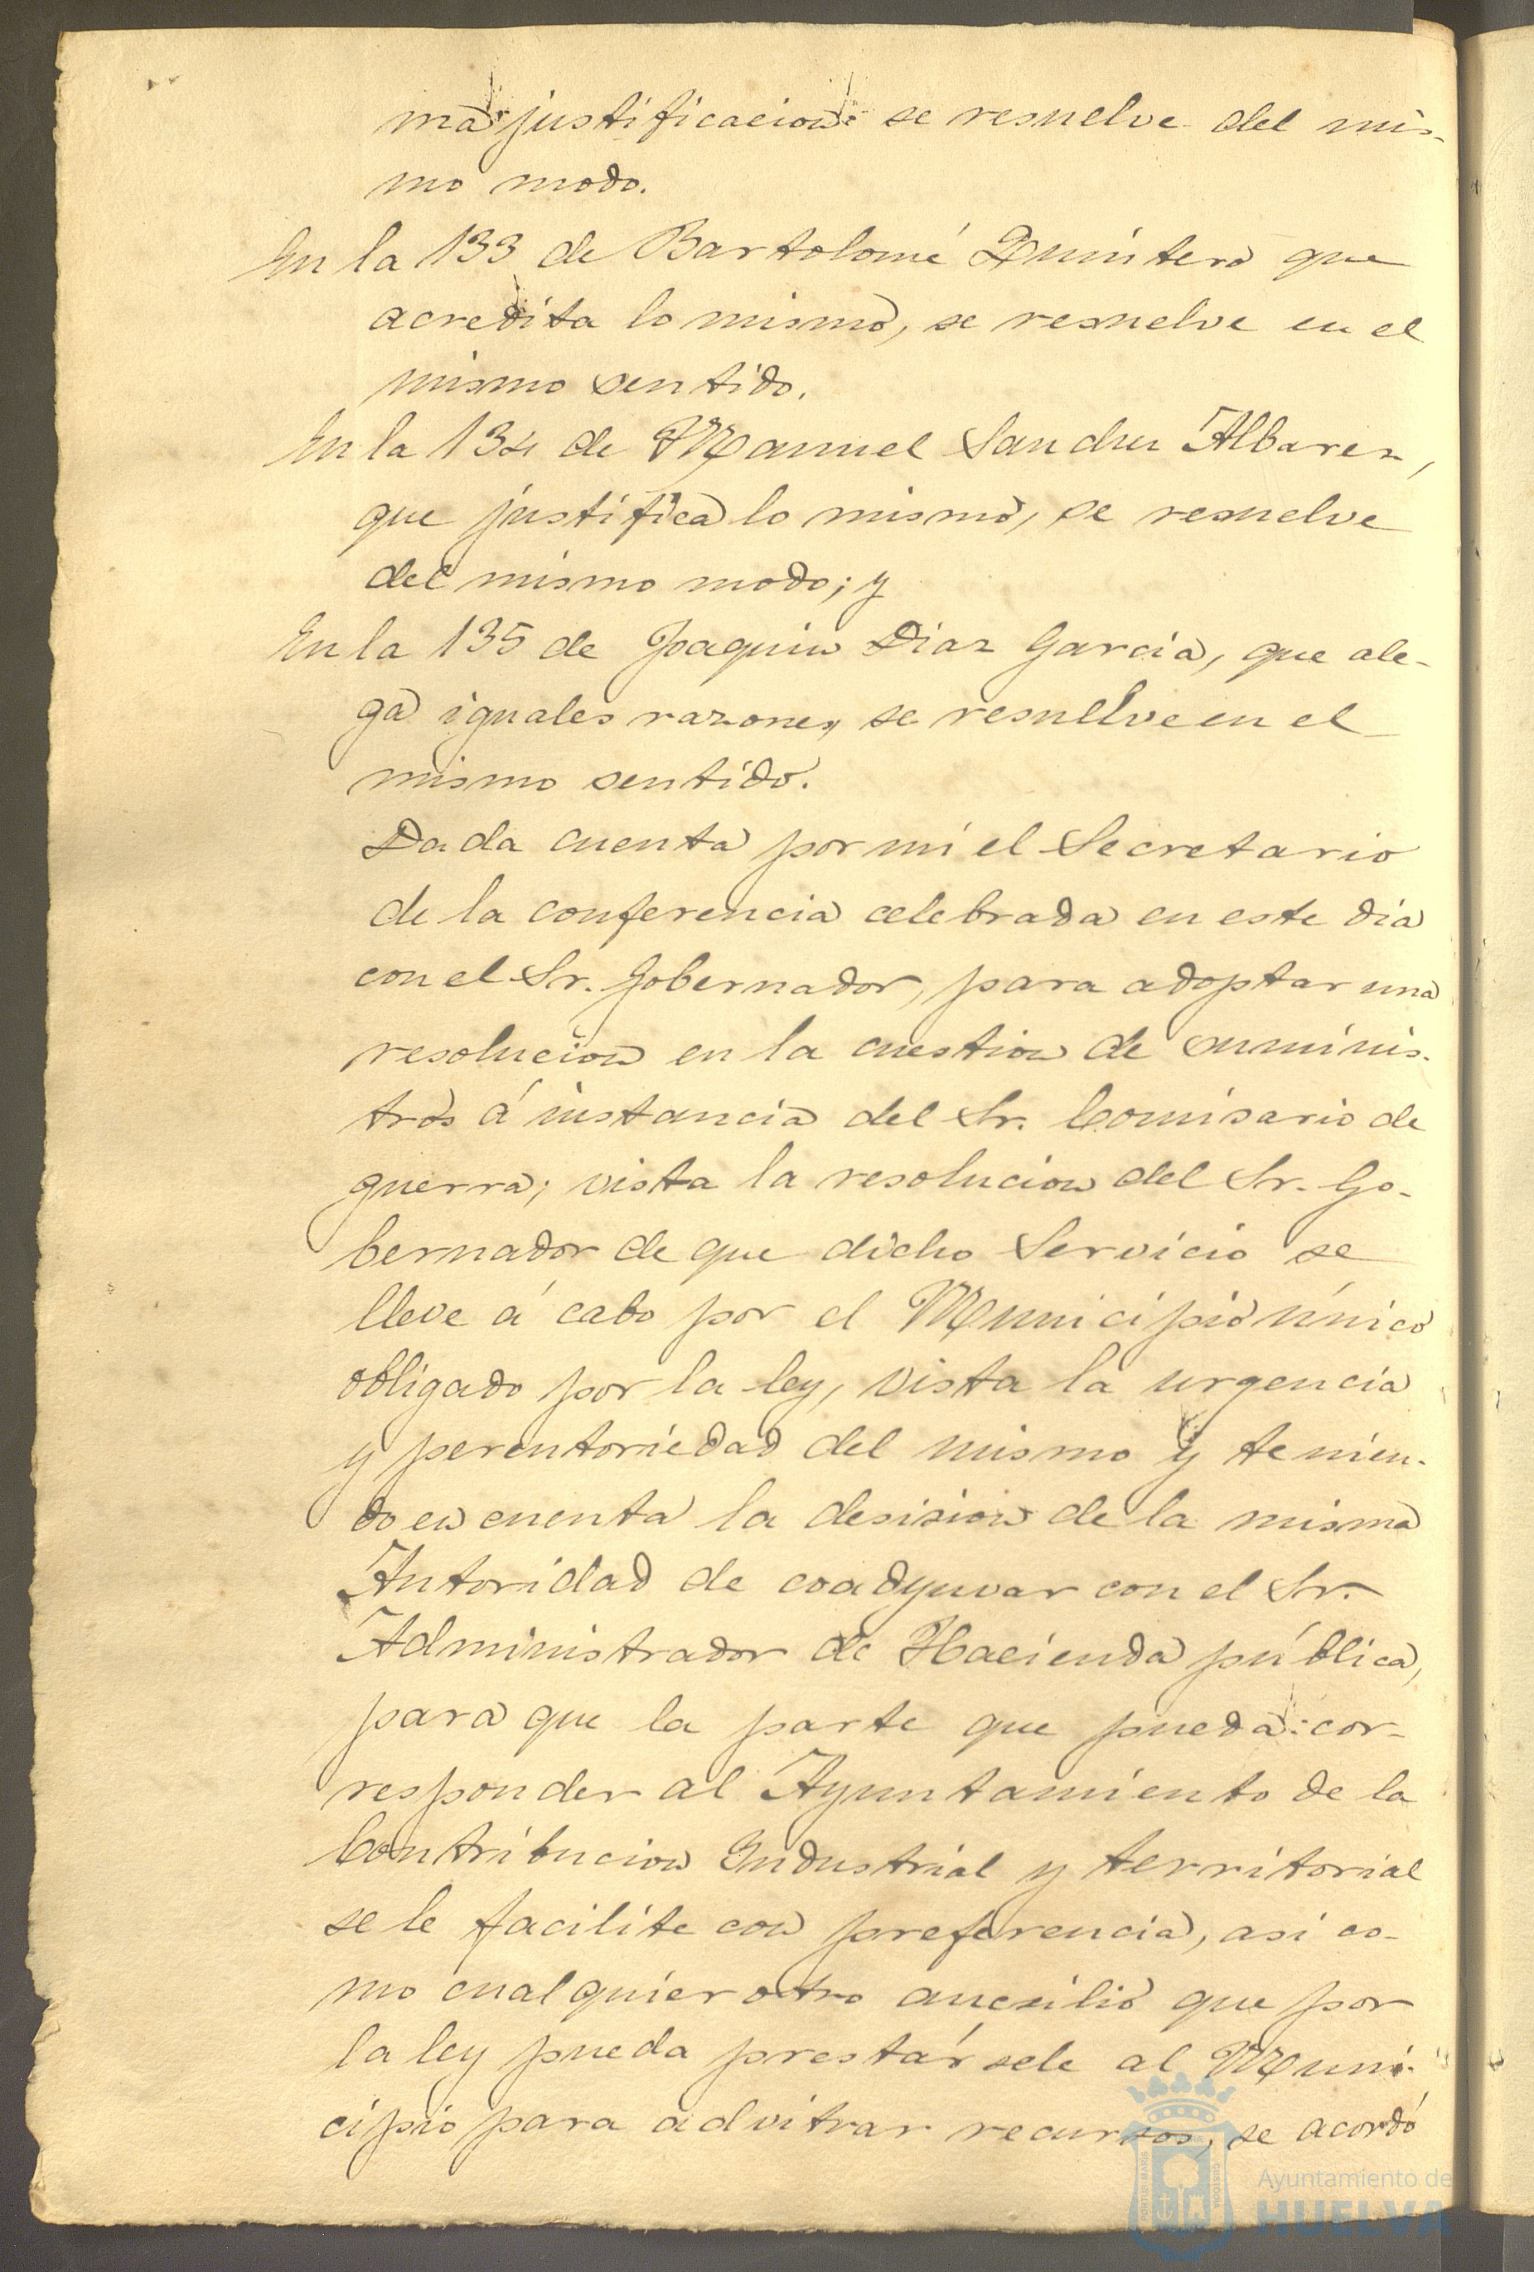 ma justificacion: se resuelve del mis-
mo modo.
En la 133 de Bartolomé Quintero que
acredita lo mismo, se resuelve en el
mismo sentido.
En la 134 de Manuel Sandru Albarez,
que justifica lo mismo, se resuelve
del mismo modo; y
En la 135 de Joaquin Diaz Garcia, que ale-
ga iguales razones, se resuelve en el
mismo sentido.
Dada cuenta por mi el Secretario
de la conferencia celebrada en este dia
con el Sr. Gobernador, para adoptar una
resolucion en la cuestion de suminis-
tros á instancia del Sr. Comisario de
guerra; vista la resolucion del Sr. Go-
bernador de que dicho Servicio se
lleve á cabo por el Municipio único
obligado por la ley, vista la urgencia
y perentoriedad del mismo y tenien-
do en cuenta la desision de la misma
Autoridad de coadyuvar con el Sr.
Administrador de Hacienda pública,
para que la parte que pueda cor-
responder al Ayuntamiento de la
Contribucion Industrial y territorial
se le facilite con preferencia, asi co-
mo cualquier otro aucsilio que por
la ley pueda prestársele al Muni-
cipio para advitrar recursos, se acordó
Ayuntamiento de
HUELVA